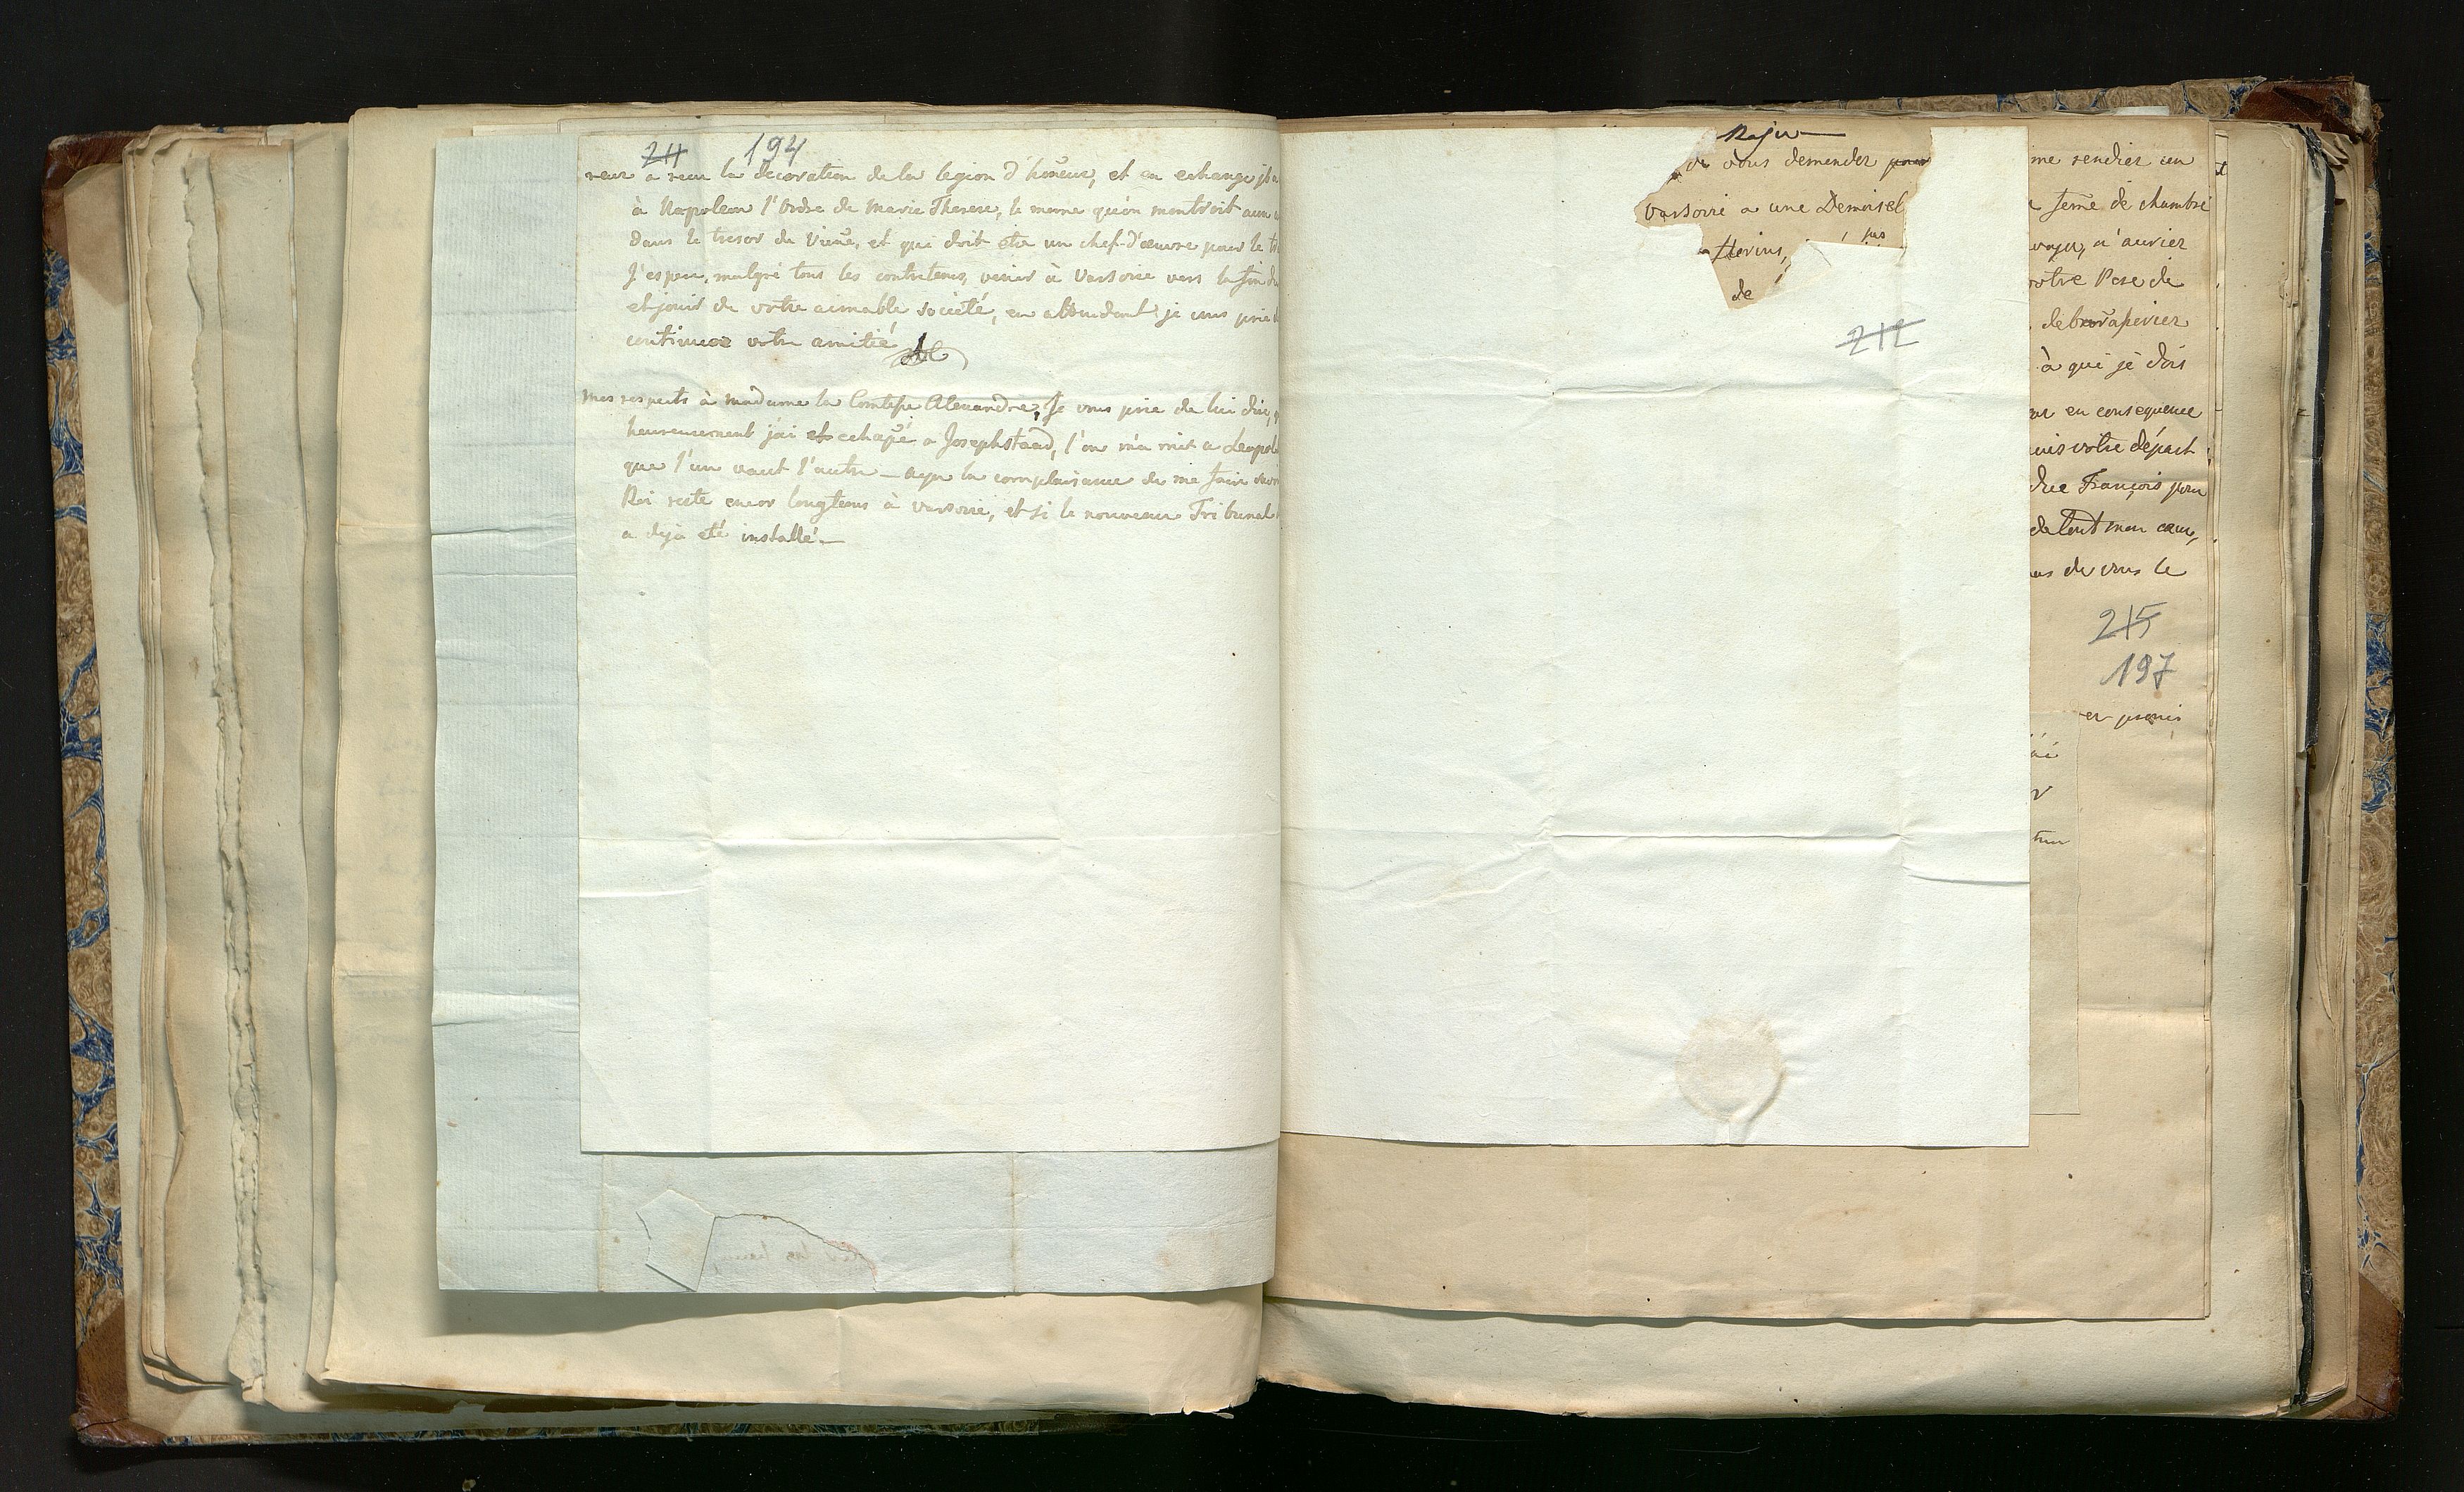 211 194
reur a reçu la decoration de la legion d'honeur, et en echange il a
à Napoleon l'Ordre de Marie Therese, le meme qu'on montroit aux
dans le tresor de Viene, et qui doit etre un chef-d'œuvre pour le
J'espere, malgré tous les contretems, venir à Varsovie vers la fin
et jouir de votre aimable societé, en attendant je vous prie
continuer votre amitié
Mes respects à Madame la Comtesse Alexandre, Je vous prie de lui dire,
heureusement j'ai echapé a Josephstaad, l'on m'a mit a Leopol
que l'un vaut l'autre — ayez la complaisance de me faire
Roi reste encor longtems à Varsovie, et si le nouveau Tribunal
a deja eté installé. —
vous demander pour
Varsovie a une Demoisel
florins,
pas
de
212
me rendier un
feme de chambre
n'aurier
votre Pere de
à qui je dois
en consequence
votre départ
François pour
de tout mon cœur,
de vous le
215
197
er promis